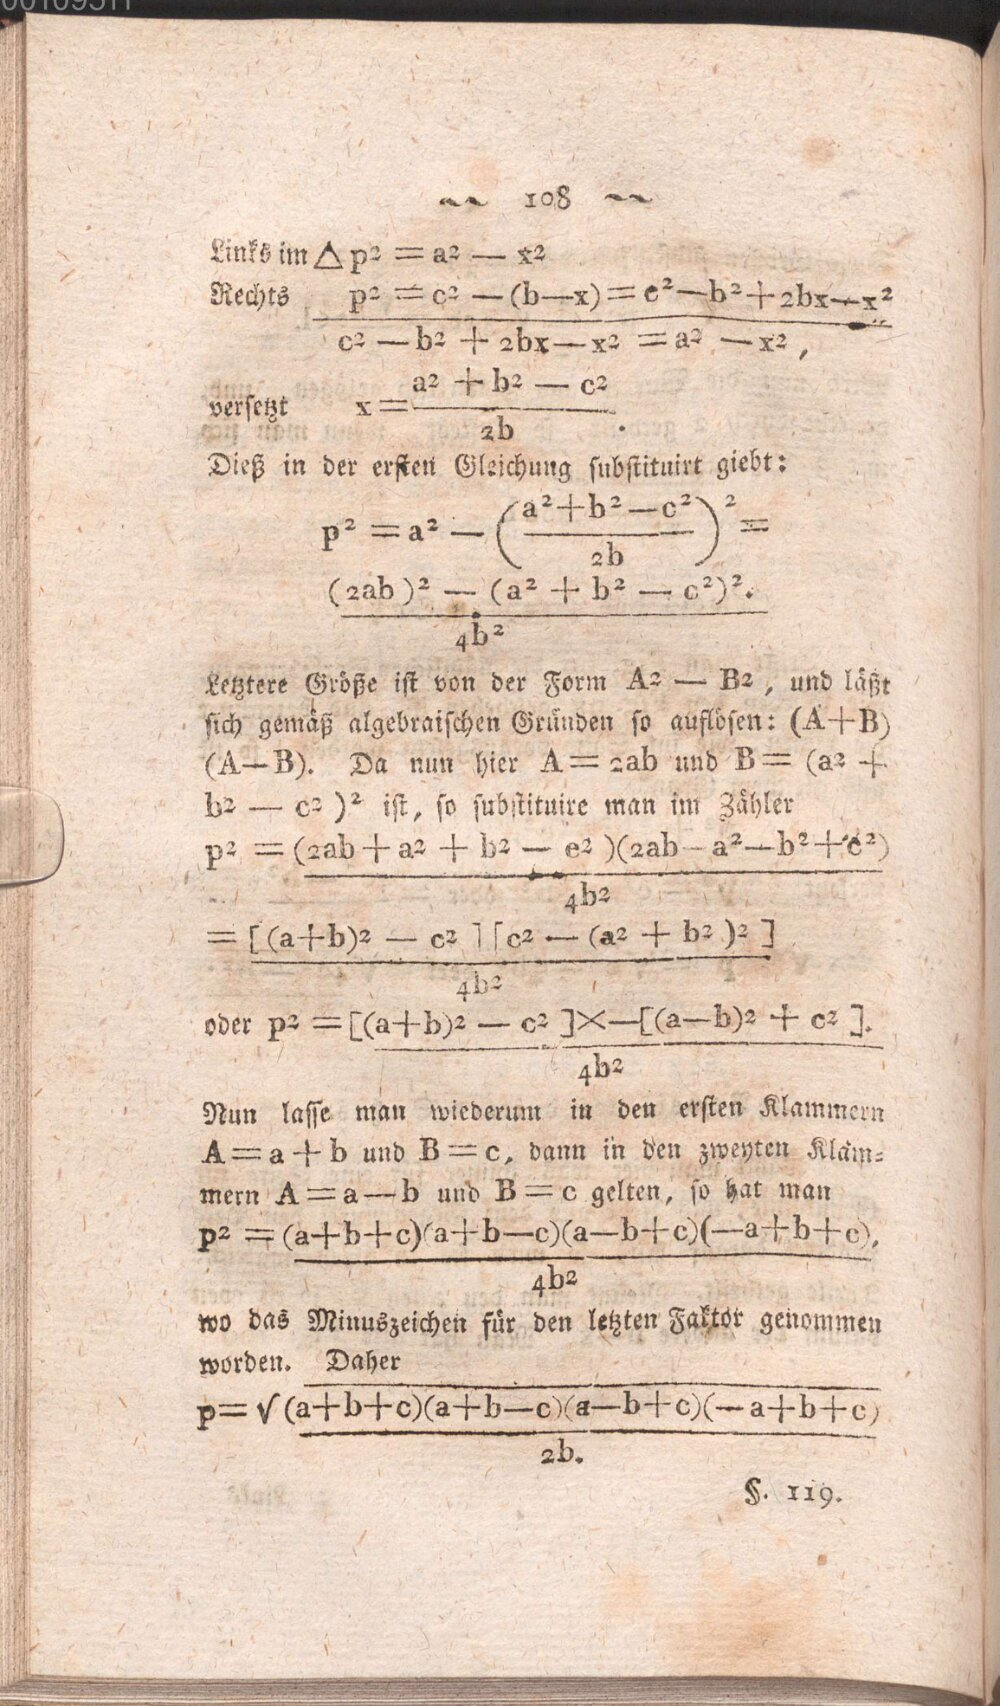 108
Links im △ p² = a² — x²
Rechts p² = c² — (b—x) = c²—b²+2bx—x²
c² — b² + 2bx—x² = a² — x²,
a² + b² — c²
versetzt x =
2b
Dieß in der ersten Gleichung substituirt giebt:
p² = a² — (a²+b²—c²)² =
2b
(2ab)² — (a² + b² — c²)².
4b²
Letztere Größe ist von der Form A² — B², und läßt
sich gemäß algebraischen Gründen so auflösen: (A+B)
(A—B). Da nun hier A = 2ab und B = (a² +
b² — c²)² ist, so substituire man im Zähler
p² = (2ab + a² + b² — e²)(2ab—a²—b²+c²)
4b²
= [(a+b)² — c²][c² — (a² + b²)²]
4b²
oder p² = [(a+b)² — c²]×—[(a—b)² + c²].
4b²
Nun lasse man wiederum in den ersten Klammern
A = a + b und B = c, dann in den zweyten Klam⸗
mern A = a — b und B = c gelten, so hat man
p² = (a+b+c)(a+b—c)(a—b+c)(—a+b+c).
4b²
wo das Minuszeichen für den letzten Faktor genommen
worden. Daher
p = √(a+b+c)(a+b—c)(a—b+c)(—a+b+c)
2b.
§. 119.